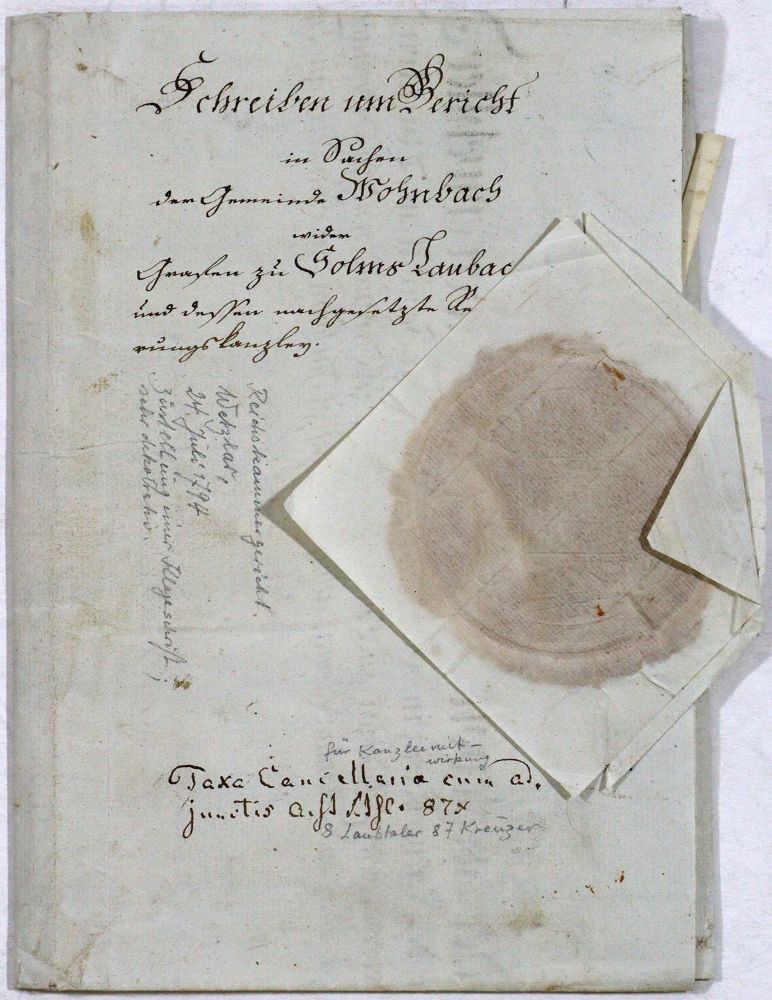 Schreiben um Bericht
in Sachen
der Gemeinde Wohnbach
wider
Grafen zu Solms Laubac
und dessen nachgesetzte Re
rungskanzley.
Reichskammergericht.
Wetzlar,
24. Juli 1794
Zustellung einer Klageschrift;
sehr dekorativ.
für Kanzleimit-
wirkung
Taxa Cancellariæ cum ad,
junctis 87x
8 Laubtaler 87 Kreuzer